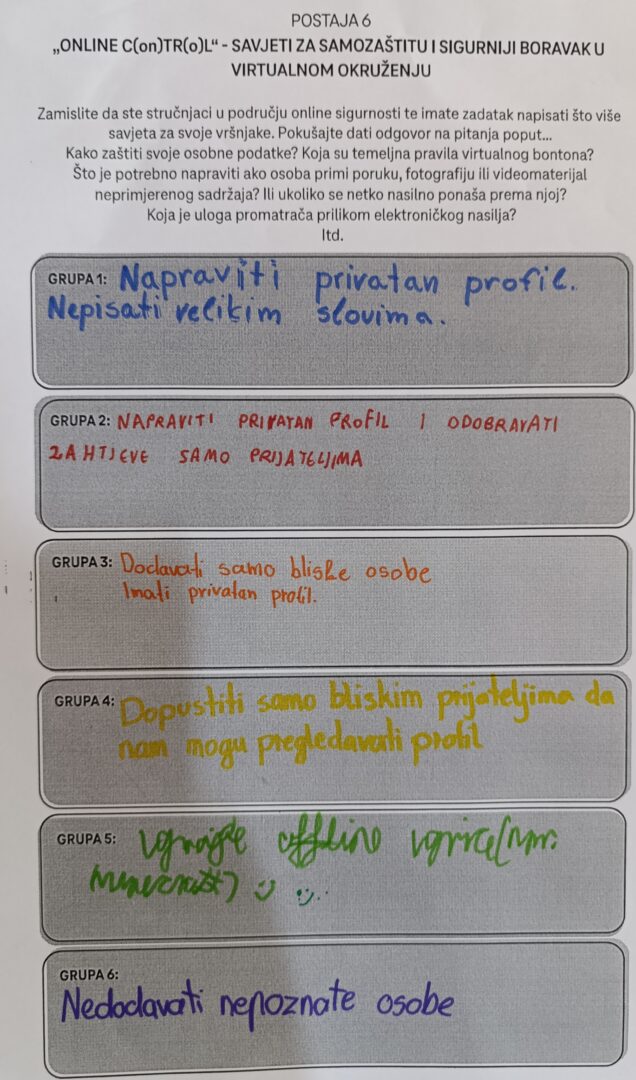 POSTAJA 6
„ONLINE C(on)TR(o)L“ - SAVJETI ZA SAMOZAŠTITU I SIGURNIJI BORAVAK U
VIRTUALNOM OKRUŽENJU
Zamislite da ste stručnjaci u području online sigurnosti te imate zadatak napisati što više
savjeta za svoje vršnjake. Pokušajte dati odgovor na pitanja poput...
Kako zaštiti svoje osobne podatke? Koja su temeljna pravila virtualnog bontona?
Što je potrebno napraviti ako osoba primi poruku, fotografiju ili videomaterijal
neprimjerenog sadržaja? Ili ukoliko se netko nasilno ponaša prema njoj?
Koja je uloga promatrača prilikom elektroničkog nasilja?
Itd.
GRUPA 1: Napraviti privatan profil.
Nepisati velikim slovima.
GRUPA 2: NAPRAVITI PRIVATAN PROFIL I ODOBRAVATI
ZAHTJEVE SAMO PRIJATELJIMA
GRUPA 3: Dodavati samo bliske osobe
Imati privatan profil.
GRUPA 4: Dopustiti samo bliskim prijateljima da
nam mogu pregledavati profil
GRUPA 5: offline igrice(npr.
minecraft) :) :)
GRUPA 6:
Nedodavati nepoznate osobe